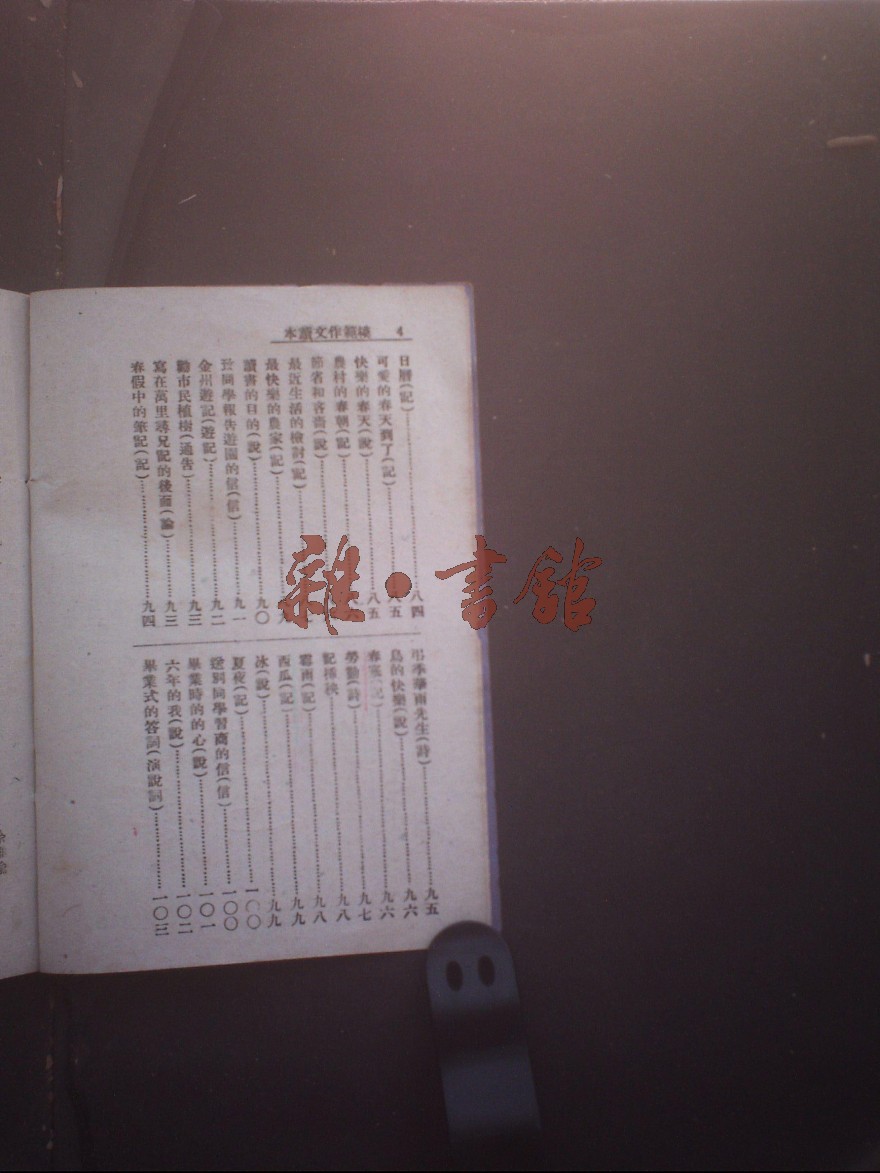 本讀文作範模 4
日曆(記)…………八四
可愛的春天到了(記)…………八五
快樂的春天(說)…………八五
農村的春朝(記)
節省和吝嗇(說)
最近生活的檢討(記)
最快樂的農家(記)
讀書的目的(說)…………九〇
致同學報告遊園的信(信)…………九一
金州遊記(遊記)…………九二
勸市民植樹(通告)…………九三
寫在萬里尋兄記的後面(論)…………九三
春假中的筆記(記)…………九四
弔季華甫先生(詩)…………九五
鳥的快樂(說)…………九六
春寒(記)…………九六
勞動(詩)…………九七
記插秧…………九八
霉雨(記)…………九八
西瓜(記)…………九九
冰(說)…………九九
夏夜(記)…………一〇〇
送別同學習商的信(信)…………一〇〇
畢業時的的心(說)…………一〇一
六年的我(說)…………一〇二
畢業式的答詞(演說詞)…………一〇三
雜·書館